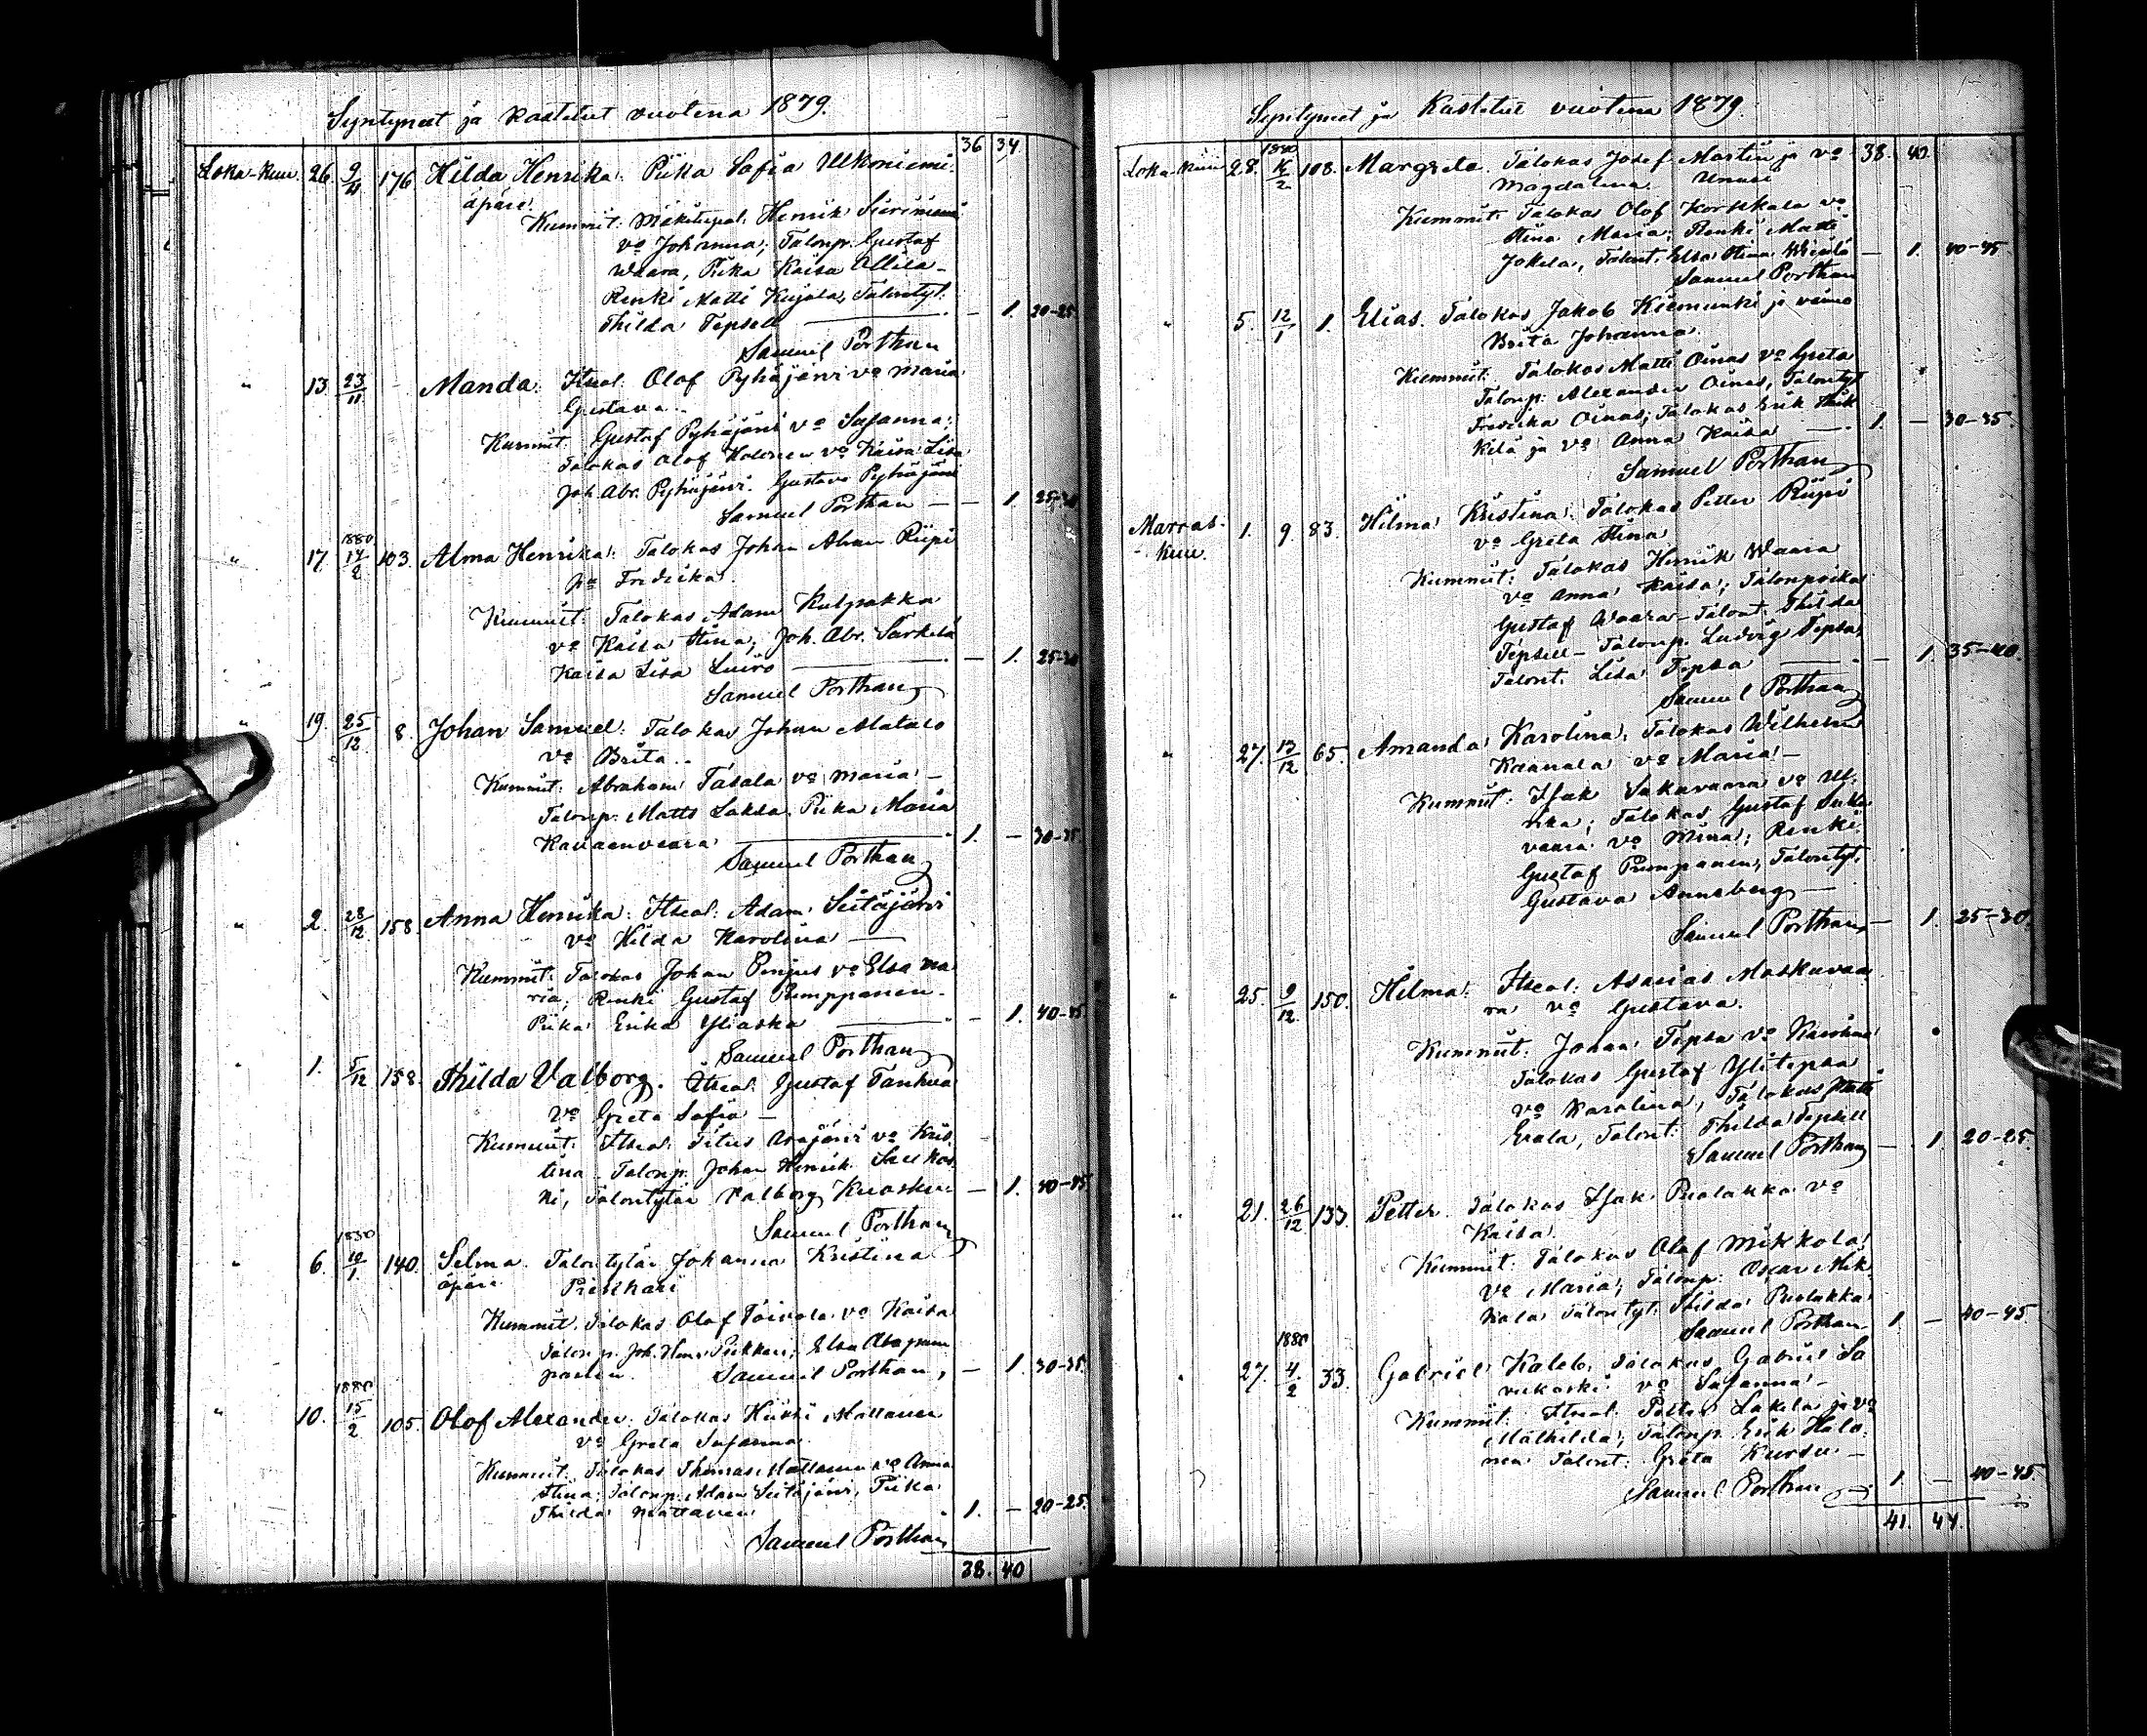 Syntyneet ja kastetut vuotena 1879.
36 34
Loka-kuu. 26. 9/11 176 Hilda Henrika. Piika Sofia Ulkoniemi.
äpärä.
Kummit: Mäkitupal. Henrik
vo Johanna; Talonp. Gustaf
Waara, Piika Kaisa Allila -
Renki Matti Kujala, Talontyt.
Thilda Tepsell — 1. 20-25
Samuel Porthan
" 13. 23/11 - Manda. Itseal. Olof Pyhäjärvi vo Maria
Gustava.
Kummit: Gustaf Pyhäjärvi vo Susanna;
Talokas Olof Halonen vo Kaisa Lisa
Joh. Abr. Pyhäjärvi. Gustava Pyhäjärvi
Samuel Porthan — 1. 25-30
1880
" 17. 14/2 103. Alma Henrika. Talokas Johan Riipi
Fredrika.
Kummit: Talokas Adam Kulpakka
vo Kaisa Stina; Joh. Abr. Särkelä
Kaisa Lisa Luiro — 1. 25-30
Samuel Porthan
" 19. 25/12 8. Johan Samuel. Talokas Johan Alatalo
vo Brita.
Kummit: Abraham vo Maria -
Talonp. Matts Lakela. Piika Maria
Kavaenvaara 1. — 30-35
Samuel Porthan
" 2. 28/12 158 Anna Henrika. Itseal. Adam Seitäjärvi
vo Hilda Karolina —
Kummit: Talokas Johan vo Elsa Ma
ria; Renki Gustaf Pumppanen -
Piika Erika Yliaska — 1. 40-45
Samuel Porthan
" 1. 5/12 158. Thilda Valborg. Itseal. Gustaf Tanhua
vo Greta Sofia —
Kummit: Itseal. Titus Arajärvi vo Kris
tina. Talonp. Johan Henrik Saukos
ki, Talontytär Valborg Kuosku — 1. 40-45
Samuel Porthan
1880
" 6. 10/1 140. Selma. Talontytär Johanna Kristina
äpärä
Kummit. Talokas Olof Toivola vo Kaisa
Talonp. Joh. Elsa
Samuel Porthan, — 1. 30-35
1880
" 10. 15/2 105. Olof Alexander. Talokas Heikki Mattanen
vo Greta Susanna.
Kummit: Talokas Thomas Mattanen vo Anna
Stina; Talonp. Adam Seitäjärvi, Piika
Thilda Mattanen 1. — 20-25.
Samuel Porthan
38. 40
Syntyneet ja Kastetut vuotena 1879.
1880 38. 40
Loka-kuu 28. 108. Margreta. Talokas Josef Martin ja vo
Magdalena.
Kummit: Talokas Olof Korkkala vo
Stina Maria; Renki Matti
Jokela, Talont. Elsa Stina — 1. 40-45
Samuel Porthan
" 5. 12/1 1. Elias. Talokas Jakob Kiemunki ja vaimo
Brita Johanna.
Kummit: Talokas Matti Oinas vo Greta
Talonp. Alexander Oinas, Talontyt
Fredrika Oinas; Talokas Erik
kilä ja vo Anna Kaisa 1. — 30-35.
Samuel Porthan
Marras-
-kuu. 1. 9. 83. Hilma Kristina. Talokas Petter Riipi
vo Greta Stina
Kummit: Talokas Henrik Waara
vo Anna Kaisa; Talonpoika
Gustaf Waara - Talont. Thilda
Tepsell - Talonp. Ludvig Tepsa,
Talont. Lisa Tepsa — 1. 35-40.
Samuel Porthan
" 27. 13/12 65. Amanda Karolina. Talokas Wilhelm
Kaanala vo Maria -
Kummit: Isak Sakavaara vo Ul
rika; Talokas Gustaf
vaara vo Mina; Renki
Gustaf Pumpanen; Talontyt.
Gustava Anneberg —
Samuel Porthan — 1. 25-30
" 25. 9/12 150. Hilma. Itseal. Asarias Moskuvaa
ra vo Gustava.
Kummit. Johan Tepsa vo
Talokas Gustaf Ylitepsa
vo Karolina, Talokas Matti
Erala, Talont. Thilda Tepsell
Samuel Porthan — 1. 20-25.
" 21. 26/12 133. Petter. Talokas Isak Puolakka vo
Kaisa.
Kummit: Talokas Olof Mikkola
vo Maria; Talonp. Oscar Mik
kola Talontyt. Thilda Puolakka
Samuel Porthan 1. — 40-45
1880
" 27. 4/2 33. Gabriel Kaleb. Talokas Gabriel Sa
rukoski vo Susanna -
Kummit: Itseal. Petter Lakela ja vo
Mathilda; Talonp. Erik Halo
nen Talont. Greta Kursu —
Samuel Porthan 1. — 40-45
41. 44.